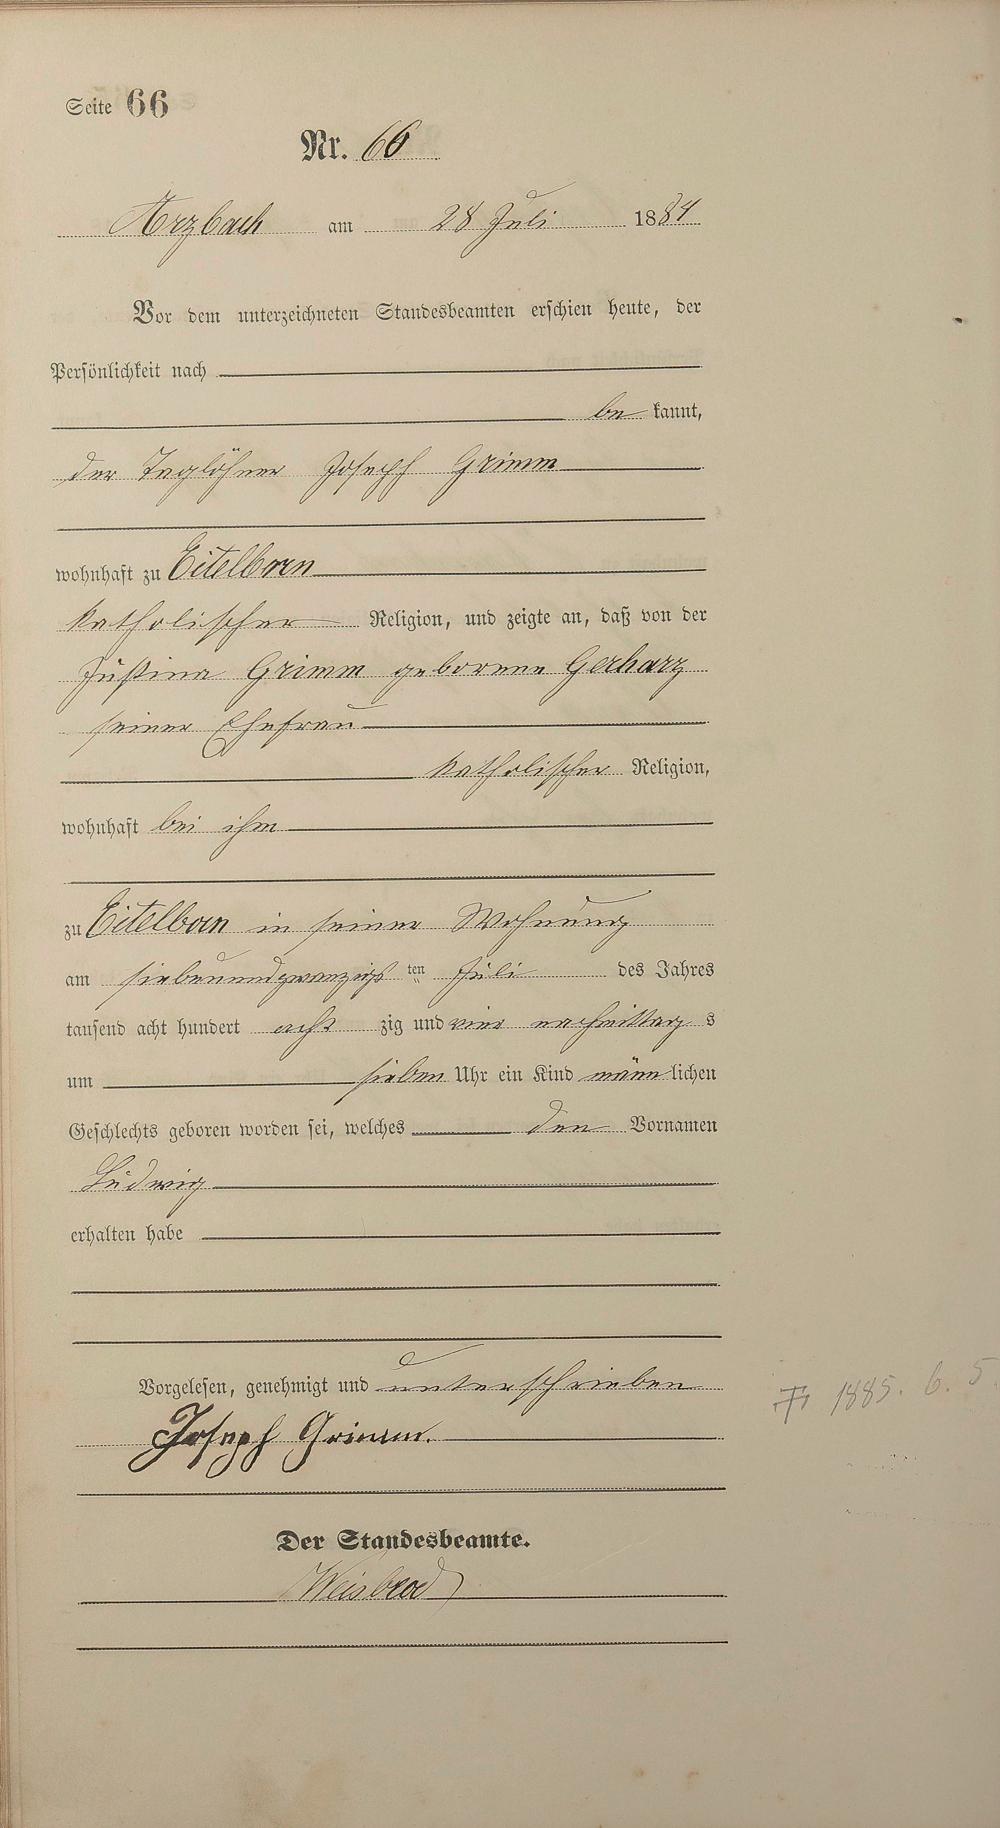 Seite 66
Nr. 66
Arzbach am 28 Juli 1884
Vor dem unterzeichneten Standesbeamten erschien heute, der
Persönlichkeit nach
be kannt,
der Taglöhner Joseph Grimm
wohnhaft zu Eitelborn
katholischer Religion, und zeigte an, daß von der
Justina Grimm geborene Gerharz
seiner Ehefrau
katholischer Religion,
wohnhaft bei ihm
zu Eitelborn in seiner Wohnung
am siebenundzwanzigsten Juli des Jahres
tausend acht hundert acht zig und vier nachmittag s
um sieben Uhr ein Kind männlichen
Geschlechts geboren worden sei, welches den Vornamen
Ludwig
erhalten habe
Vorgelesen, genehmigt und unterschrieben
Joseph Grimm.
Der Standesbeamte.
Weisbrod
1885. 6. 5